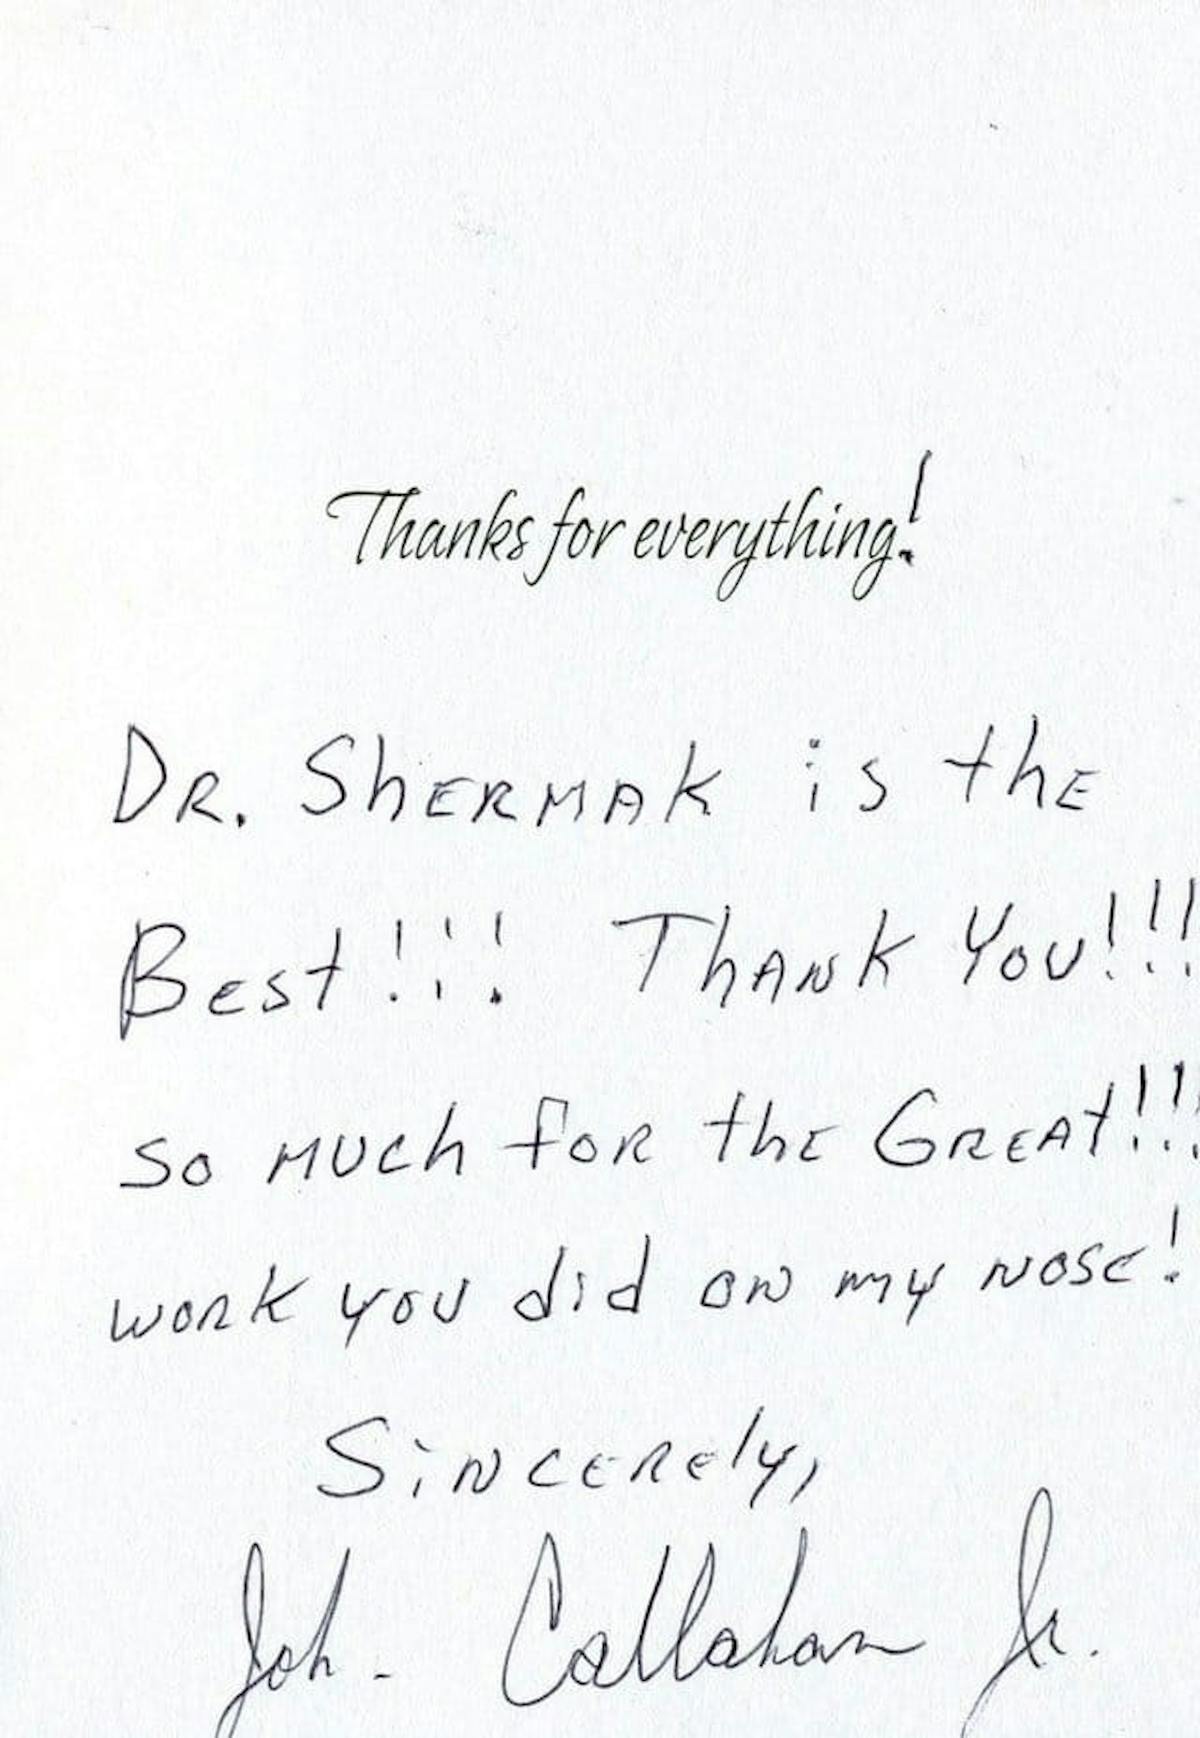 Thanks for everything!
DR. ShERMAK is the
Best!!! ThANK YOU!!!
so MUch foR the GREAt!!!
woRk you did on my nose!
SiNCERely,
John Callahan Jr.